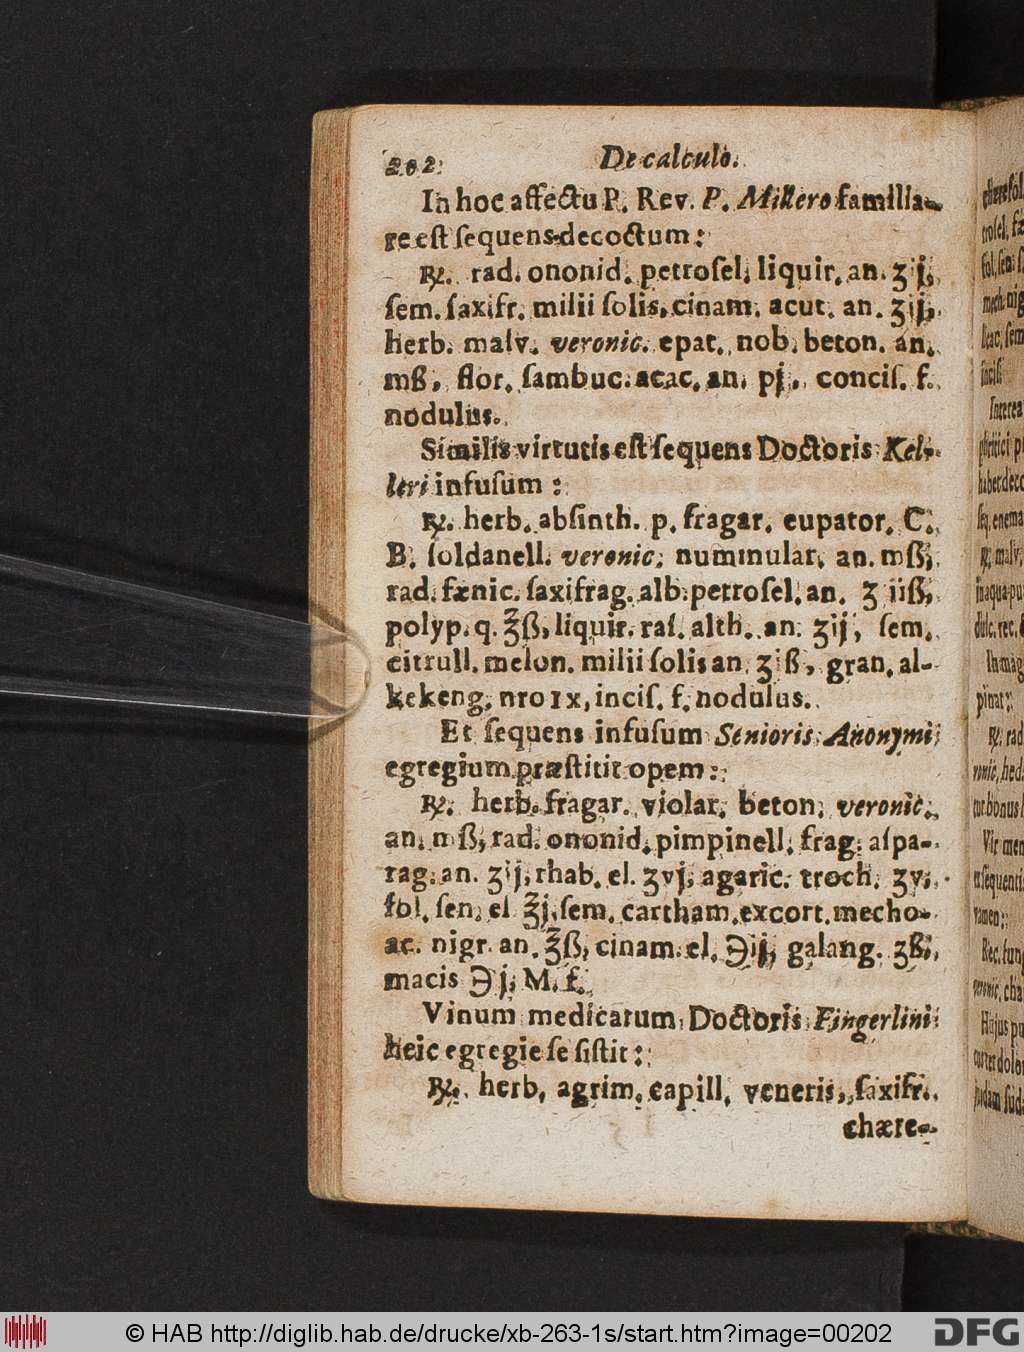 202 De calculo.
In hoc affectu P. Rev. P. Millero familia-
re est ſequens decoctum:
℞. rad. ononid. petroſel. liquir. an. ʒij,
ſem. ſaxifr. milii ſolis, cinam. acut. an. ʒij,
herb. malv. veronic. epat. nob. beton. an.
mß, flor. ſambuc. acac. an. pj, conciſ. f.
nodulus.
Similis virtutis eſt ſequens Doctoris Kel-
leri infuſum:
℞. herb. abſinth. p. fragar. eupator. C.
B. ſoldanell. veronic. nummular. an. mß,
rad. fænic. ſaxifrag. alb. petroſel. an. ʒ iiß,
polyp. q. ℥ß, liquir. raſ. alth. an. ʒij, ſem.
citrull. melon. milii ſolis an. ʒiß, gran. al-
kekeng. nro ıx, inciſ. f. nodulus.
Et ſequens infuſum Senioris Anonymi
egregium præſtitit opem:
℞. herb. fragar. violar. beton. veronic.
an. mß, rad. ononid. pimpinell. frag. aſpa-
rag. an. ʒij, rhab. el. ʒvj, agaric. troch. ʒv,
fol. ſen. el ℥j, ſem. cartham. excort. mecho-
ac. nigr. an. ℥ß, cinam. el. ℈ij, galang. ʒß,
macis ℈j, M. f.
Vinum medicatum Doctoris Fingerlini
heic egregie ſe ſiſtit:
℞. herb. agrim. capill. veneris, ſaxifr.
chære-
© HAB http://diglib.hab.de/drucke/xb-263-1s/start.htm?image=00202
DFG